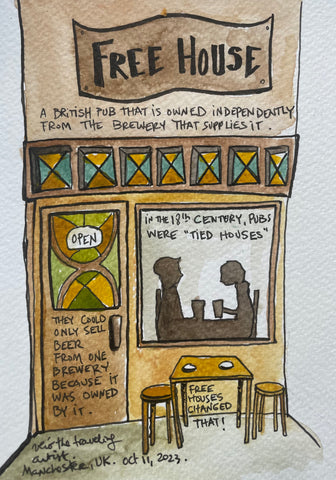 FREE HOUSE
A BRITISH PUB THAT IS OWNED INDEPENDENTLY
FROM THE BREWERY THAT SUPPLIES IT.
IN THE 18th CENTURY, PUBS
WERE "TIED HOUSES"
OPEN
THEY COULD
ONLY SELL
BEER
FROM ONE
BREWERY
BECAUSE IT
WAS OWNED
BY IT.
FREE
HOUSES
CHANGED
THAT!
the traveling
artist.
Manchester, UK. Oct 11, 2023.